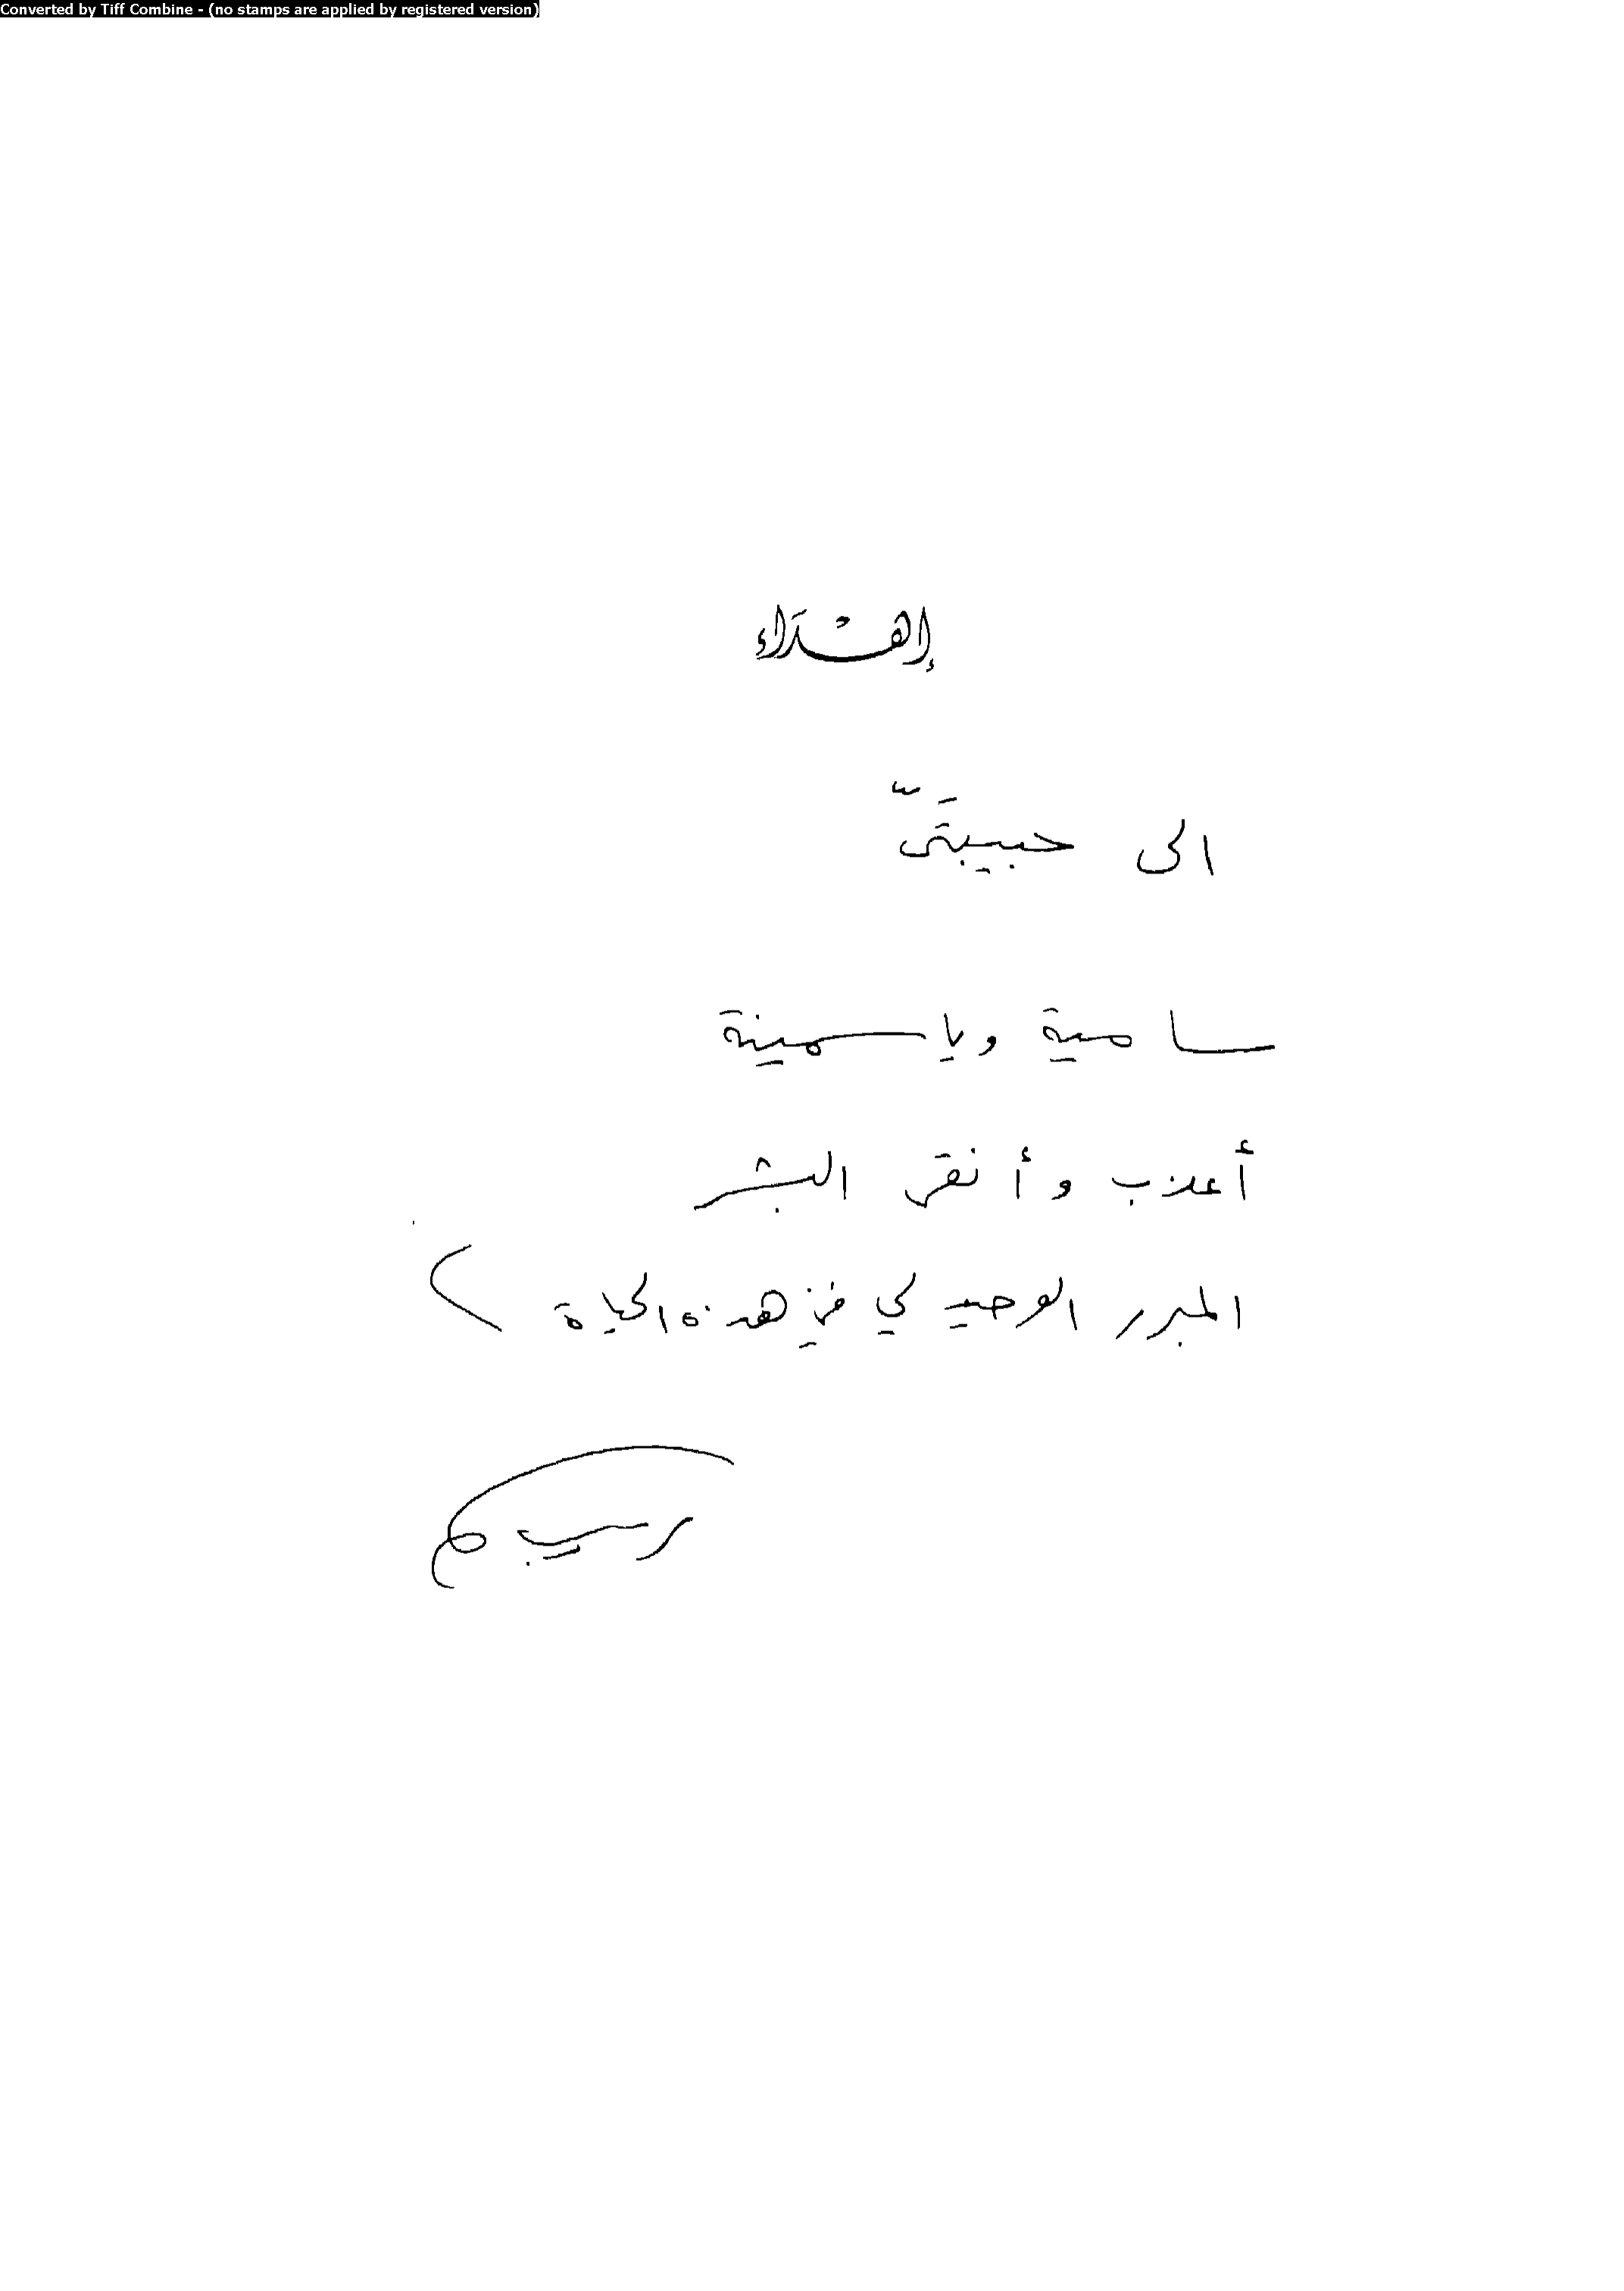 Converted by Tiff Combine - (no stamps are applied by registered version)
إهداء
الى حبيبتَيّ
سامية وياسمينة
أعذب وأنقى البشر
المبرر الوحيد لي في هذه الحياة